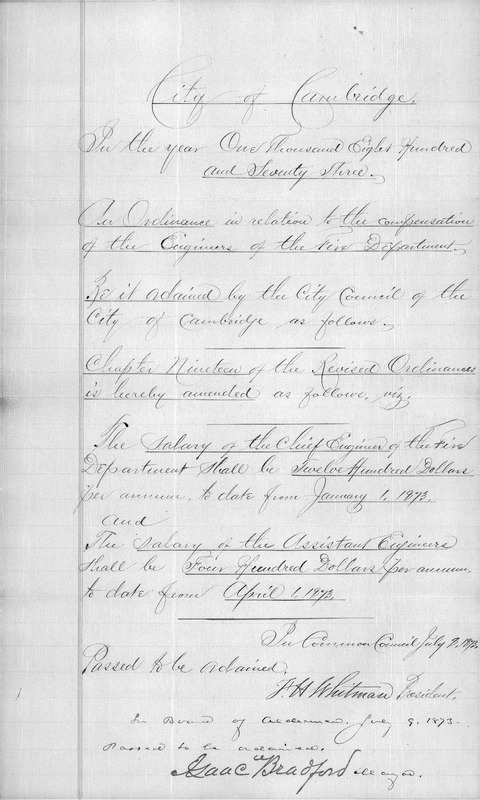 City of Cambridge.
In the year One Thousand Eight Hundred
and Seventy Three.
An Ordinance in relation to the compensation
of the Engineers of the Fire Department.
Be it ordained by the City Council of the
City of Cambridge as follows.
Chapter Nineteen of the Revised Ordinances
is hereby amended as follows, viz.
The Salary of the Chief Engineer of the Fire
Department Shall be Twelve Hundred Dollars
per annum, to date from January 1, 1873.
and
The Salary of the Assistant Engineers
shall be Four Hundred Dollars per annum,
to date from April 1, 1873.
In Common Council July 9, 1873.
Passed to be ordained.
Whitman President.
In Board of Aldermen. July 9, 1873.
Passed to be ordained.
Isaac Bradford Mayor.